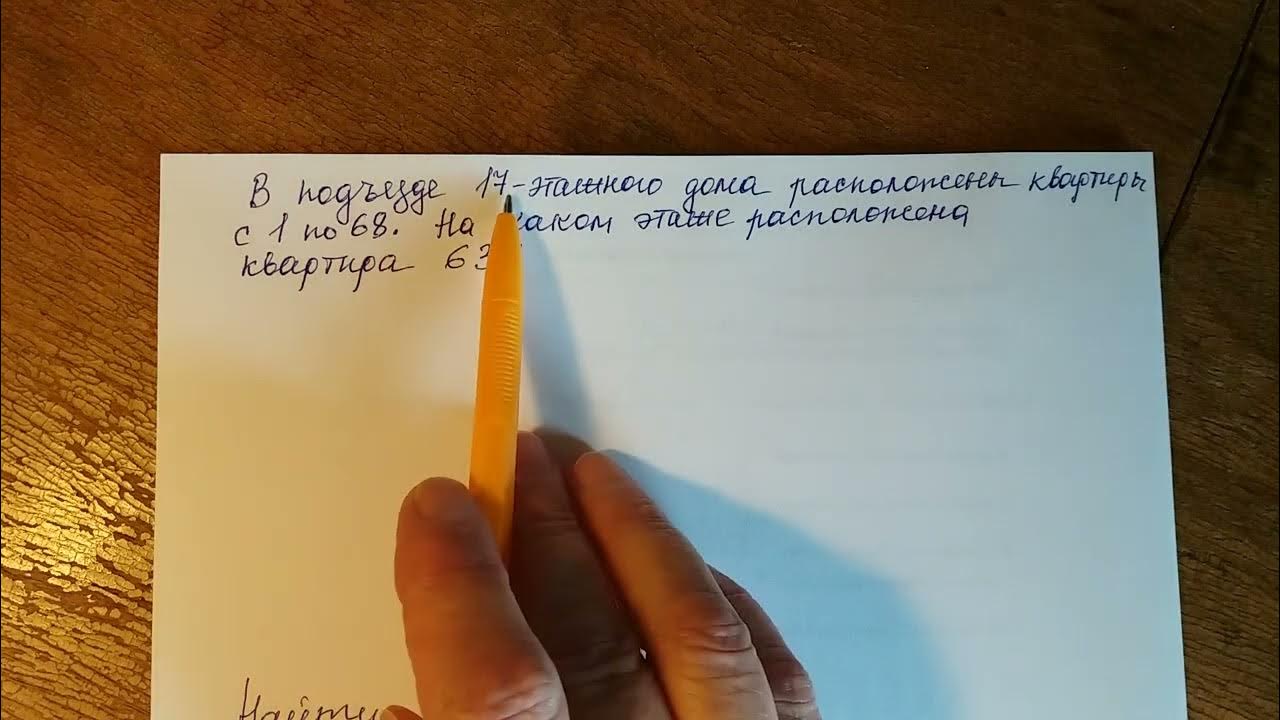 В подъезде 17-этажного дома расположены квартиры
с 1 по 68. На каком этаже расположена
квартира 63
Найти